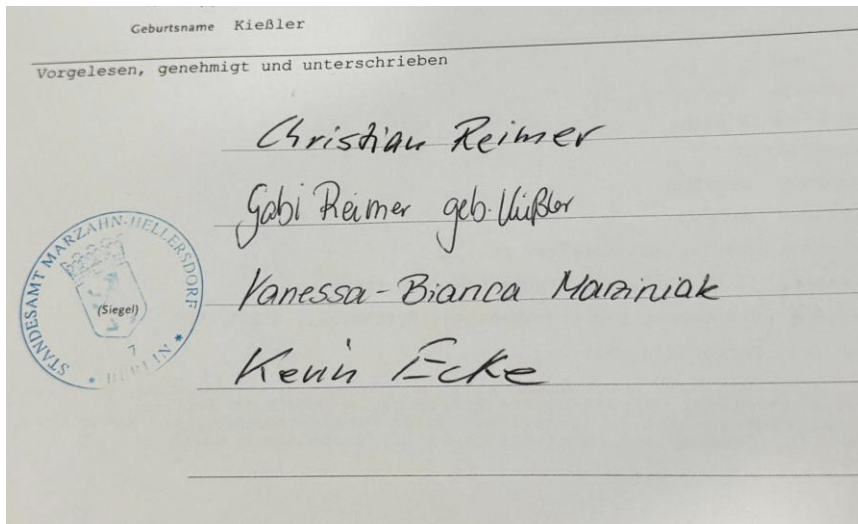 Geburtsname Kießler
Vorgelesen, genehmigt und unterschrieben
Christian Reimer
Gabi Reimer geb. Kießler
Vanessa-Bianca Marziniak
Kevin Ecke
STANDESAMT MARZAHN-HELLERSDORF
(Siegel)
7
* BERLIN *